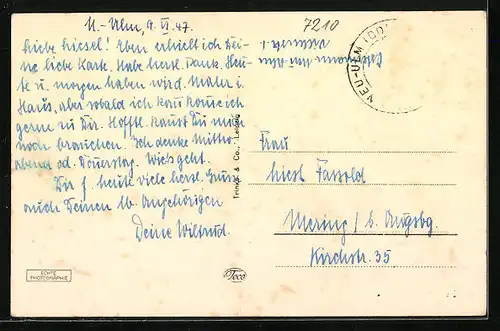 N.-Ulm, 9. VI. 47.
Liebe Liesel! Eben erhielt ich Dei-
ne liebe Karte. Habe herzl. Dank. Heu-
te u. morgen haben wir d. Maler i.
Haus, aber sobald ich kann komme ich
gerne zu Dir. Hofftl. kannst Du mich
noch brauchen. Ich denke Mittwo-
abend od. Donerstag. Wie's geht.
Dir f. heute viele herzl. Grüsse
auch Deinen lb. Angehörigen
Deine Wiltrud.
7210
NEU-ULM (DO
Frau
Liesl Fassold
Mering / b. Augsbg.
Kirchstr. 35
Trinks & Co., Leipzig
ECHTE
PHOTOGRAPHIE
Toco